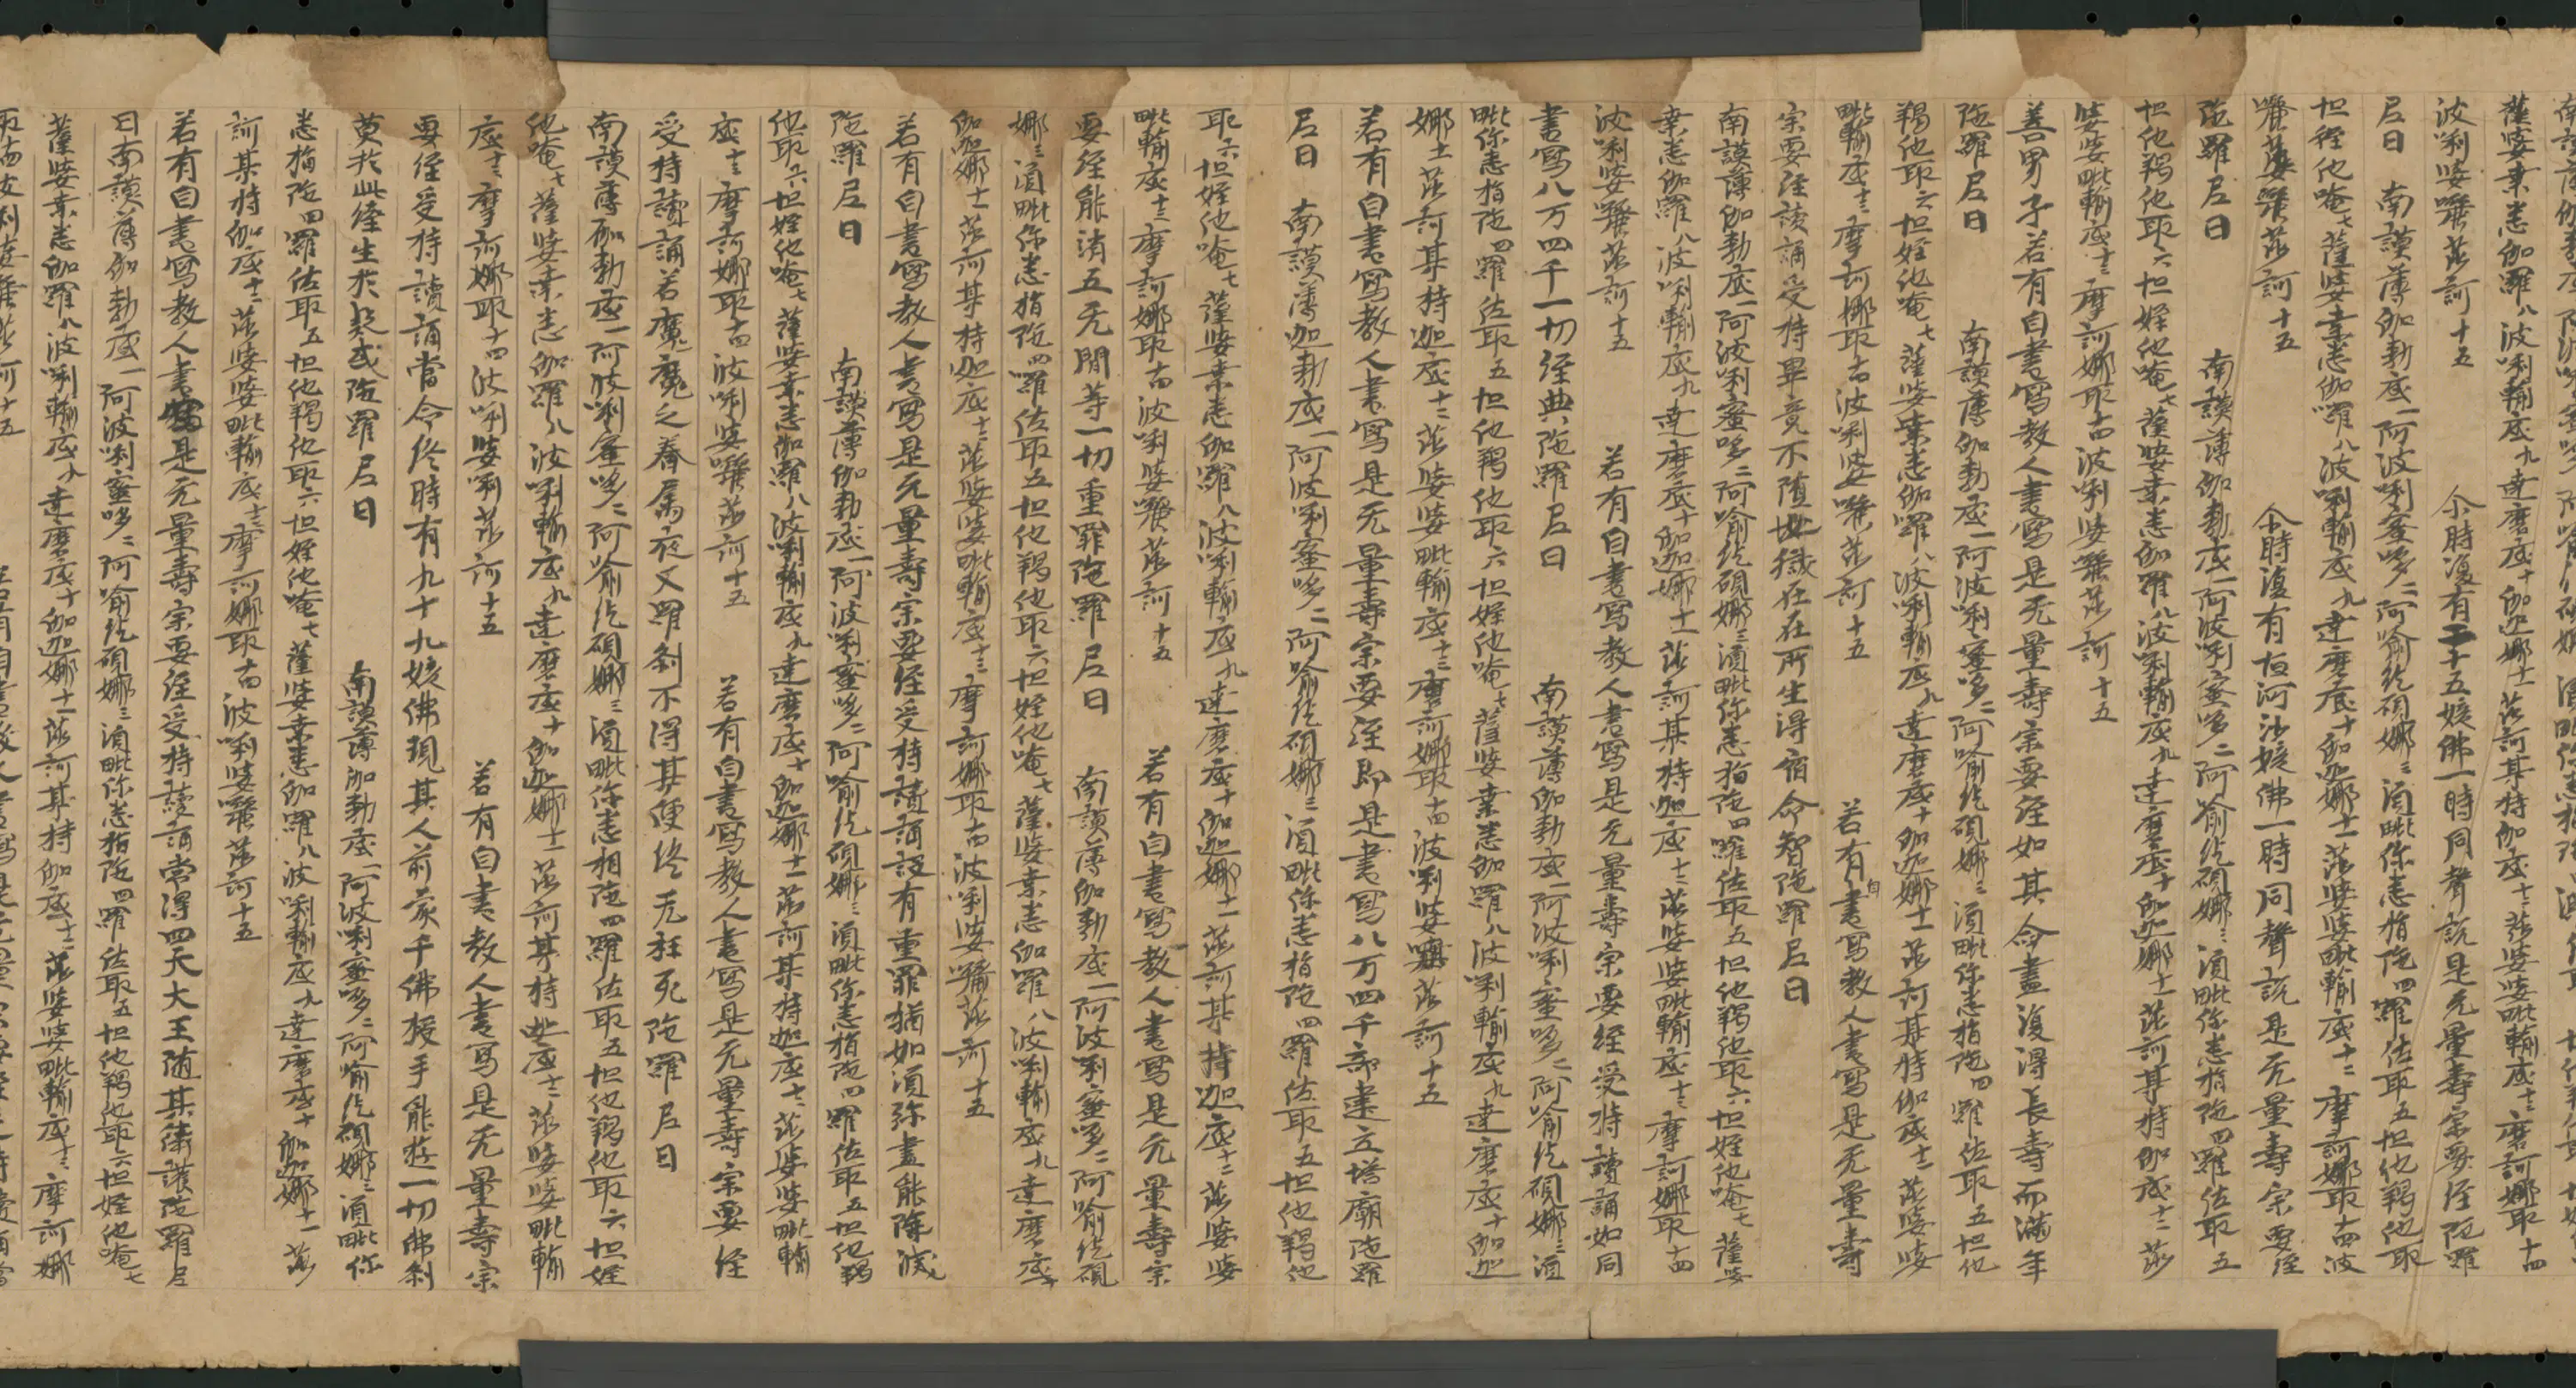 薩婆桒悉伽羅八波唎輸底九達磨底十伽迦娜十一莎訶某持伽底十二莎婆婆毗輸底十三摩訶娜取十四
波唎婆囄莎訶十五 尒時復有二十五姟佛一時同聲說是无量壽宗要経陁羅
尼曰 南謨薄伽勃底一阿波唎蜜哆二阿喻紇硯娜三湏毗你悉指陁四羅佐取五怛他羯他取
六怛姪他唵七薩婆桒悉伽羅八波唎輸底九達磨底十伽迦娜十一莎婆婆毗輸底十二摩訶娜取十四波
唎婆囄莎訶十五 尒時復有恒河沙姟佛一時同聲說是无量壽宗要経
陁羅尼曰 南謨薄伽勃底一阿波唎蜜哆二阿喻紇硯娜三湏毗你悉指陁四羅佐取五
怛他羯他取六怛姪他唵七薩婆桒悉伽羅八波唎輸底九達磨底十伽迦娜十一莎訶某特伽底十二莎
婆婆毗輸底十三摩訶娜取十四波唎婆囄莎訶十五
善男子若有自書寫教人書寫是无量壽宗要経如其命盡復得長壽而滿年
陁羅尼曰 南謨薄伽勃底一阿波唎蜜哆二阿喻紇硯娜三湏毗你悉指陁四羅佐取五怛他
羯他取六怛姪他唵七薩婆桒悉伽羅八波唎輸底九達磨底十伽迦娜十一莎訶某特伽底十二莎婆婆
毗輸底十三摩訶娜取十四波唎婆囄莎訶十五 若有自書寫教人書寫是无量壽
宗要経讀誦受持畢竟不墮地獄在在所生得宿命智陁羅尼曰
南謨薄伽勃底一阿波唎蜜哆二阿喻紇硯娜三湏毗你悉指陁四羅佐取五怛他羯他取六怛姪他唵七薩婆
桒悉伽羅八波唎輸底九達磨底十伽迦娜十一莎訶某特迦底十二莎婆婆毗輸底十三摩訶娜取十四
波唎婆囄莎訶十五 若有自書寫教人書寫是无量壽宗要経受持讀誦如同
書寫八万四千一切経典陁羅尼曰 南謨薄伽勃底一阿波唎蜜哆二阿喻紇硯娜三湏
毗你悉指陁四羅佐取五怛他羯他取六怛姪他唵七薩婆桒悉伽羅八波唎輸底九達磨底十伽迦
娜十一莎訶某特迦底十二莎婆婆毗輸底十三摩訶娜取十四波唎婆囄莎訶十五
若有自書寫教人書寫是无量壽宗要経即是書寫八万四千部建立塔廟陁羅
尼曰 南謨薄迦勃底一阿波唎蜜哆二阿喻紇硯娜三湏毗你悉指陁四羅佐取五怛他羯他
取六怛姪他唵七薩婆桒悉伽羅八波唎輸底九達磨底十伽迦娜十一莎訶某持迦底十二莎婆婆
毗輸底十三摩訶娜取十四波唎婆囄莎訶十五 若有自書寫教人書寫是无量壽宗
要経能消五无間等一切重罪陁羅尼曰 南謨薄伽勃底一阿波唎蜜哆二阿喻紇硯
娜三湏毗你悉指陁四羅佐取五怛他羯他取六怛姪他唵七薩婆桒悉伽羅八波唎輸底九達磨底十
伽迦娜十一莎訶某特迦底十二莎婆婆毗輸底十三摩訶娜取十四波唎婆囄莎訶十五
若有自書寫教人書寫是无量壽宗要経受持讀誦設有重罪猶如湏弥盡能除滅
陁羅尼曰 南謨薄伽勃底一阿波唎蜜哆二阿喻紇硯娜三湏毗你悉指陁四羅佐取五怛他羯
他取六怛姪他唵七薩婆桒悉伽羅八波唎輸底九達磨底十伽迦娜十一莎訶某特迦底十二莎婆婆毗輸
底十三摩訶娜取十四波唎婆囄莎訶十五 若有自書寫教人書寫是无量壽宗要経
受持讀誦若魔魔之眷屬夜叉羅剎不得其便終无枉死陁羅尼曰
南謨薄伽勃底一阿波唎蜜哆二阿喻紇硯娜三湏毗你悉相陁四羅佐取五怛他羯他取六怛姪
他唵七薩婆桒悉伽羅八波唎輸底九達磨底十伽迦娜十一莎訶某特迦底十二莎婆婆毗輸
底十三摩訶娜取十四波唎婆唎莎訶十五 若有自書教人書寫是无量壽宗
要経受持讀誦當命終時有九十九姟佛現其人前來千佛授手能遊一切佛剎
莫於此経生於疑惑陁羅尼曰 南謨薄伽勃底一阿波唎蜜哆二阿喻紇硯娜三湏毗你
悉指陁四羅佐取五怛他羯他取六怛姪他唵七薩婆桒悉伽羅八波唎輸底九達磨底十伽迦娜十一莎
訶某持伽底十二莎婆婆毗輸底十三摩訶娜取十四波唎婆囄莎訶十五
若有自書寫教人書寫是无量壽宗要経受持讀誦常得四天大王随其衛護陁羅尼
曰南謨薄伽勃底一阿波唎蜜哆二阿喻紇硯娜三湏毗你悉指陁四羅佐取五怛他羯他取六怛姪他唵七
薩婆桒悉伽羅八波唎輸底九達磨底十伽迦娜十一莎訶某持伽底十二莎婆婆毗輸底十三摩訶娜